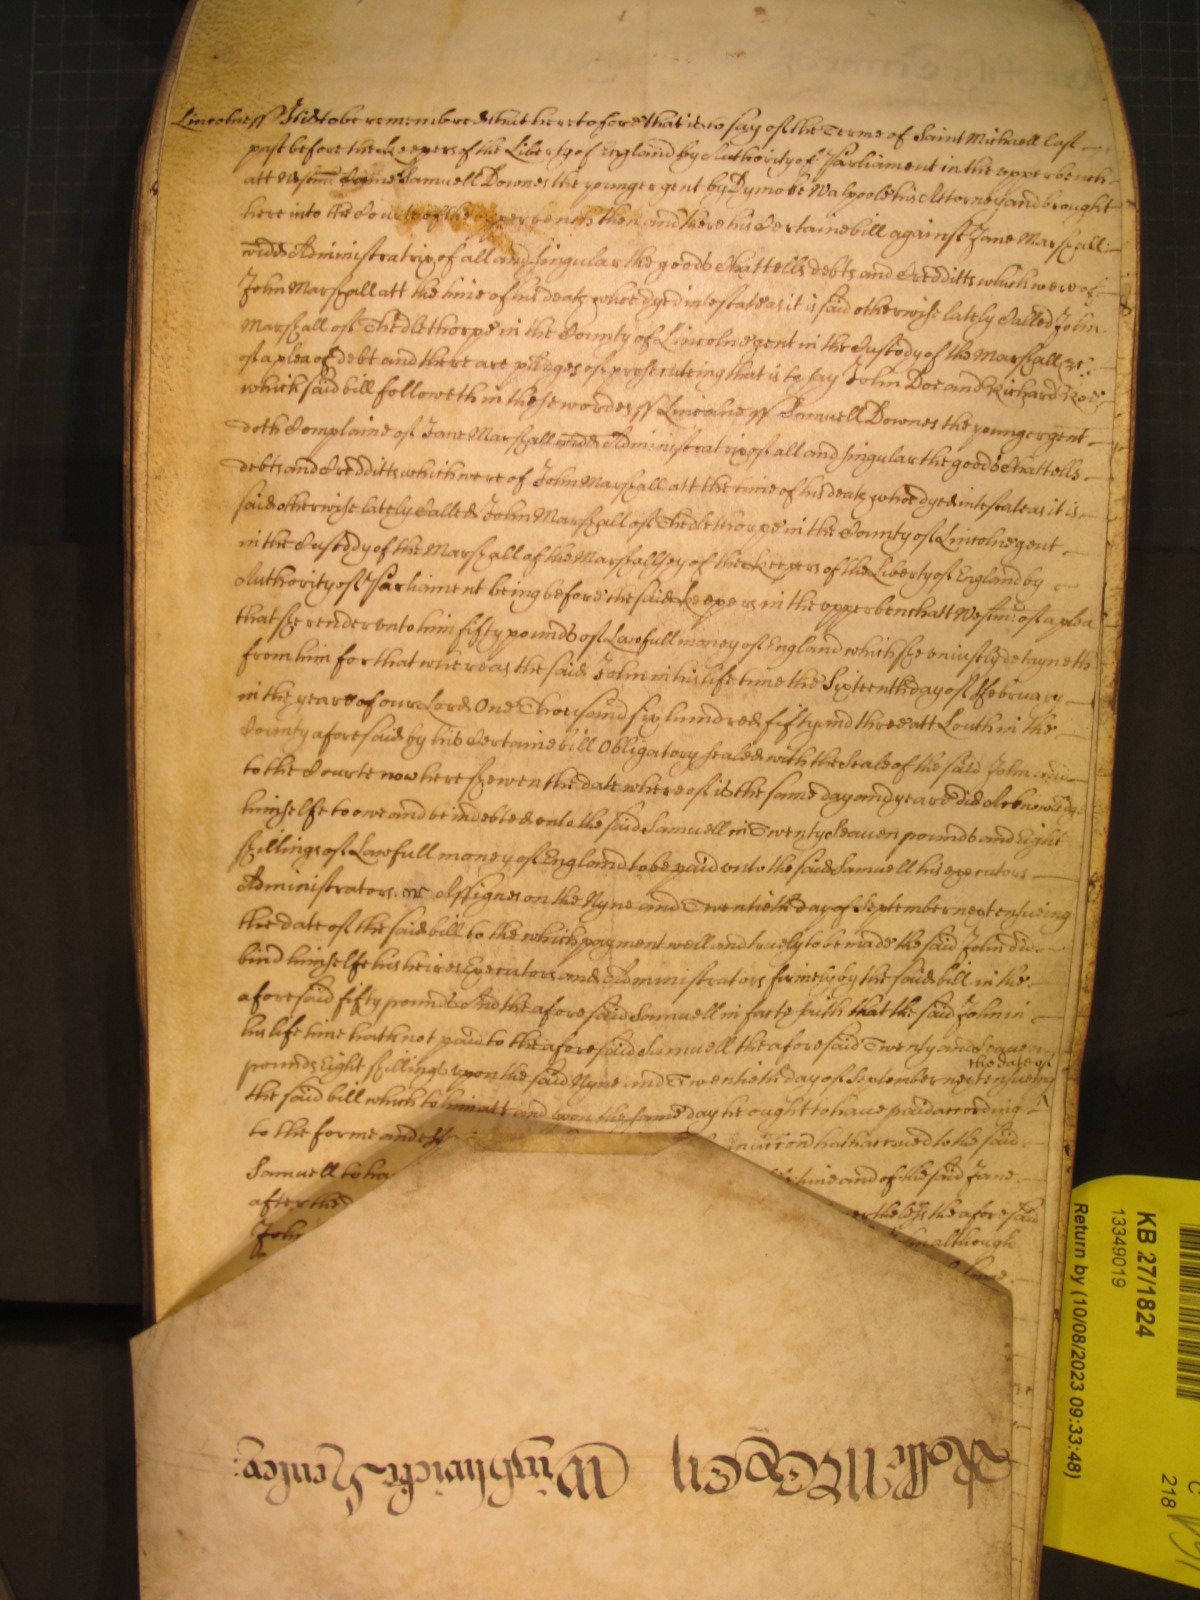 Lincolne ss It is to be remembred that heretofore that is to say of the Terme of Saint Michaell last
past before the Keepers of the Liberty of England by Authority of Parliament in the upper bench
att Westm Came Samuell Downes the younger gent by Dymoke Walpoole his Attorney and brought
here into the Courte of the upper bench then and there his Certaine bill against Jane Marshall
widd Administratrix of all and singular the goods Chattells debts and Credditts which were of
John Marshall att the time of his death who dyed intestate as it is said otherwise lately Called John
Marshall of Thedlethorpe in the County of Lincolne gent in the Custody of the Marshall &c.
of a plea of debt and there are pledges of prosecuteing that is to say John Doe and Richard Roe
which said bill followeth in these wordes ss Lincolne ss Samuell Downes the younger gent
doth Complaine of Jane Marshall widd Administratrix of all and singular the goods Chattells
debts and Credditts which were of John Marshall att the time of his death who dyed intestate as it is
said otherwise lately Called John Marshall of Thedlethorpe in the County of Lincolne gent
in the Custody of the Marshall of the Marshallsey of the Keepers of the Liberty of England by
Authority of Parliament being before the said Keepers in the upper bench att Westm of a plea
that she render unto him fifty pounds of Lawfull money of England which she uniustly detayneth
from him for that whereas the said John in his life time the Sixteenth day of February
in the yeare of our Lord One Thousand six hundred fifty and three att Louth in the
County aforesaid by his Certaine bill Obligatory sealed with the Seale of the said John and
to the Courte now here shewen the date whereof is the same day and yeare did Acknowledge
himselfe to owe and be indebted unto the said Samuell in Twenty Seaven pounds and Eight
shillings of Lawfull money of England to be paid unto the said Samuell his executors
Administrators or Assignes on the Nyne and Twentieth day of September next ensueing
the date of the said bill to the which payment well and truely to be made the said John did
bind himselfe his heires Executors and Administrators firmely by the said bill in the
aforesaid fifty pounds And the aforesaid Samuell in fact saith that the said John in
his life time hath not paid to the aforesaid Samuell the aforesaid Twenty and Seaven
pounds Eight shillings upon the said Nyne and Twentieth day of September next ensueing the date of
the said bill which to him att and upon the same day he ought to have paid according
to the forme and hath accrued to the said
Samuell to ha time and of the said Jane
after the the aforesaid
John although
Rolle Winchwicke Henley:
KB 27/1824
13349019
Return by (10/08/2023 09:33:48)
218